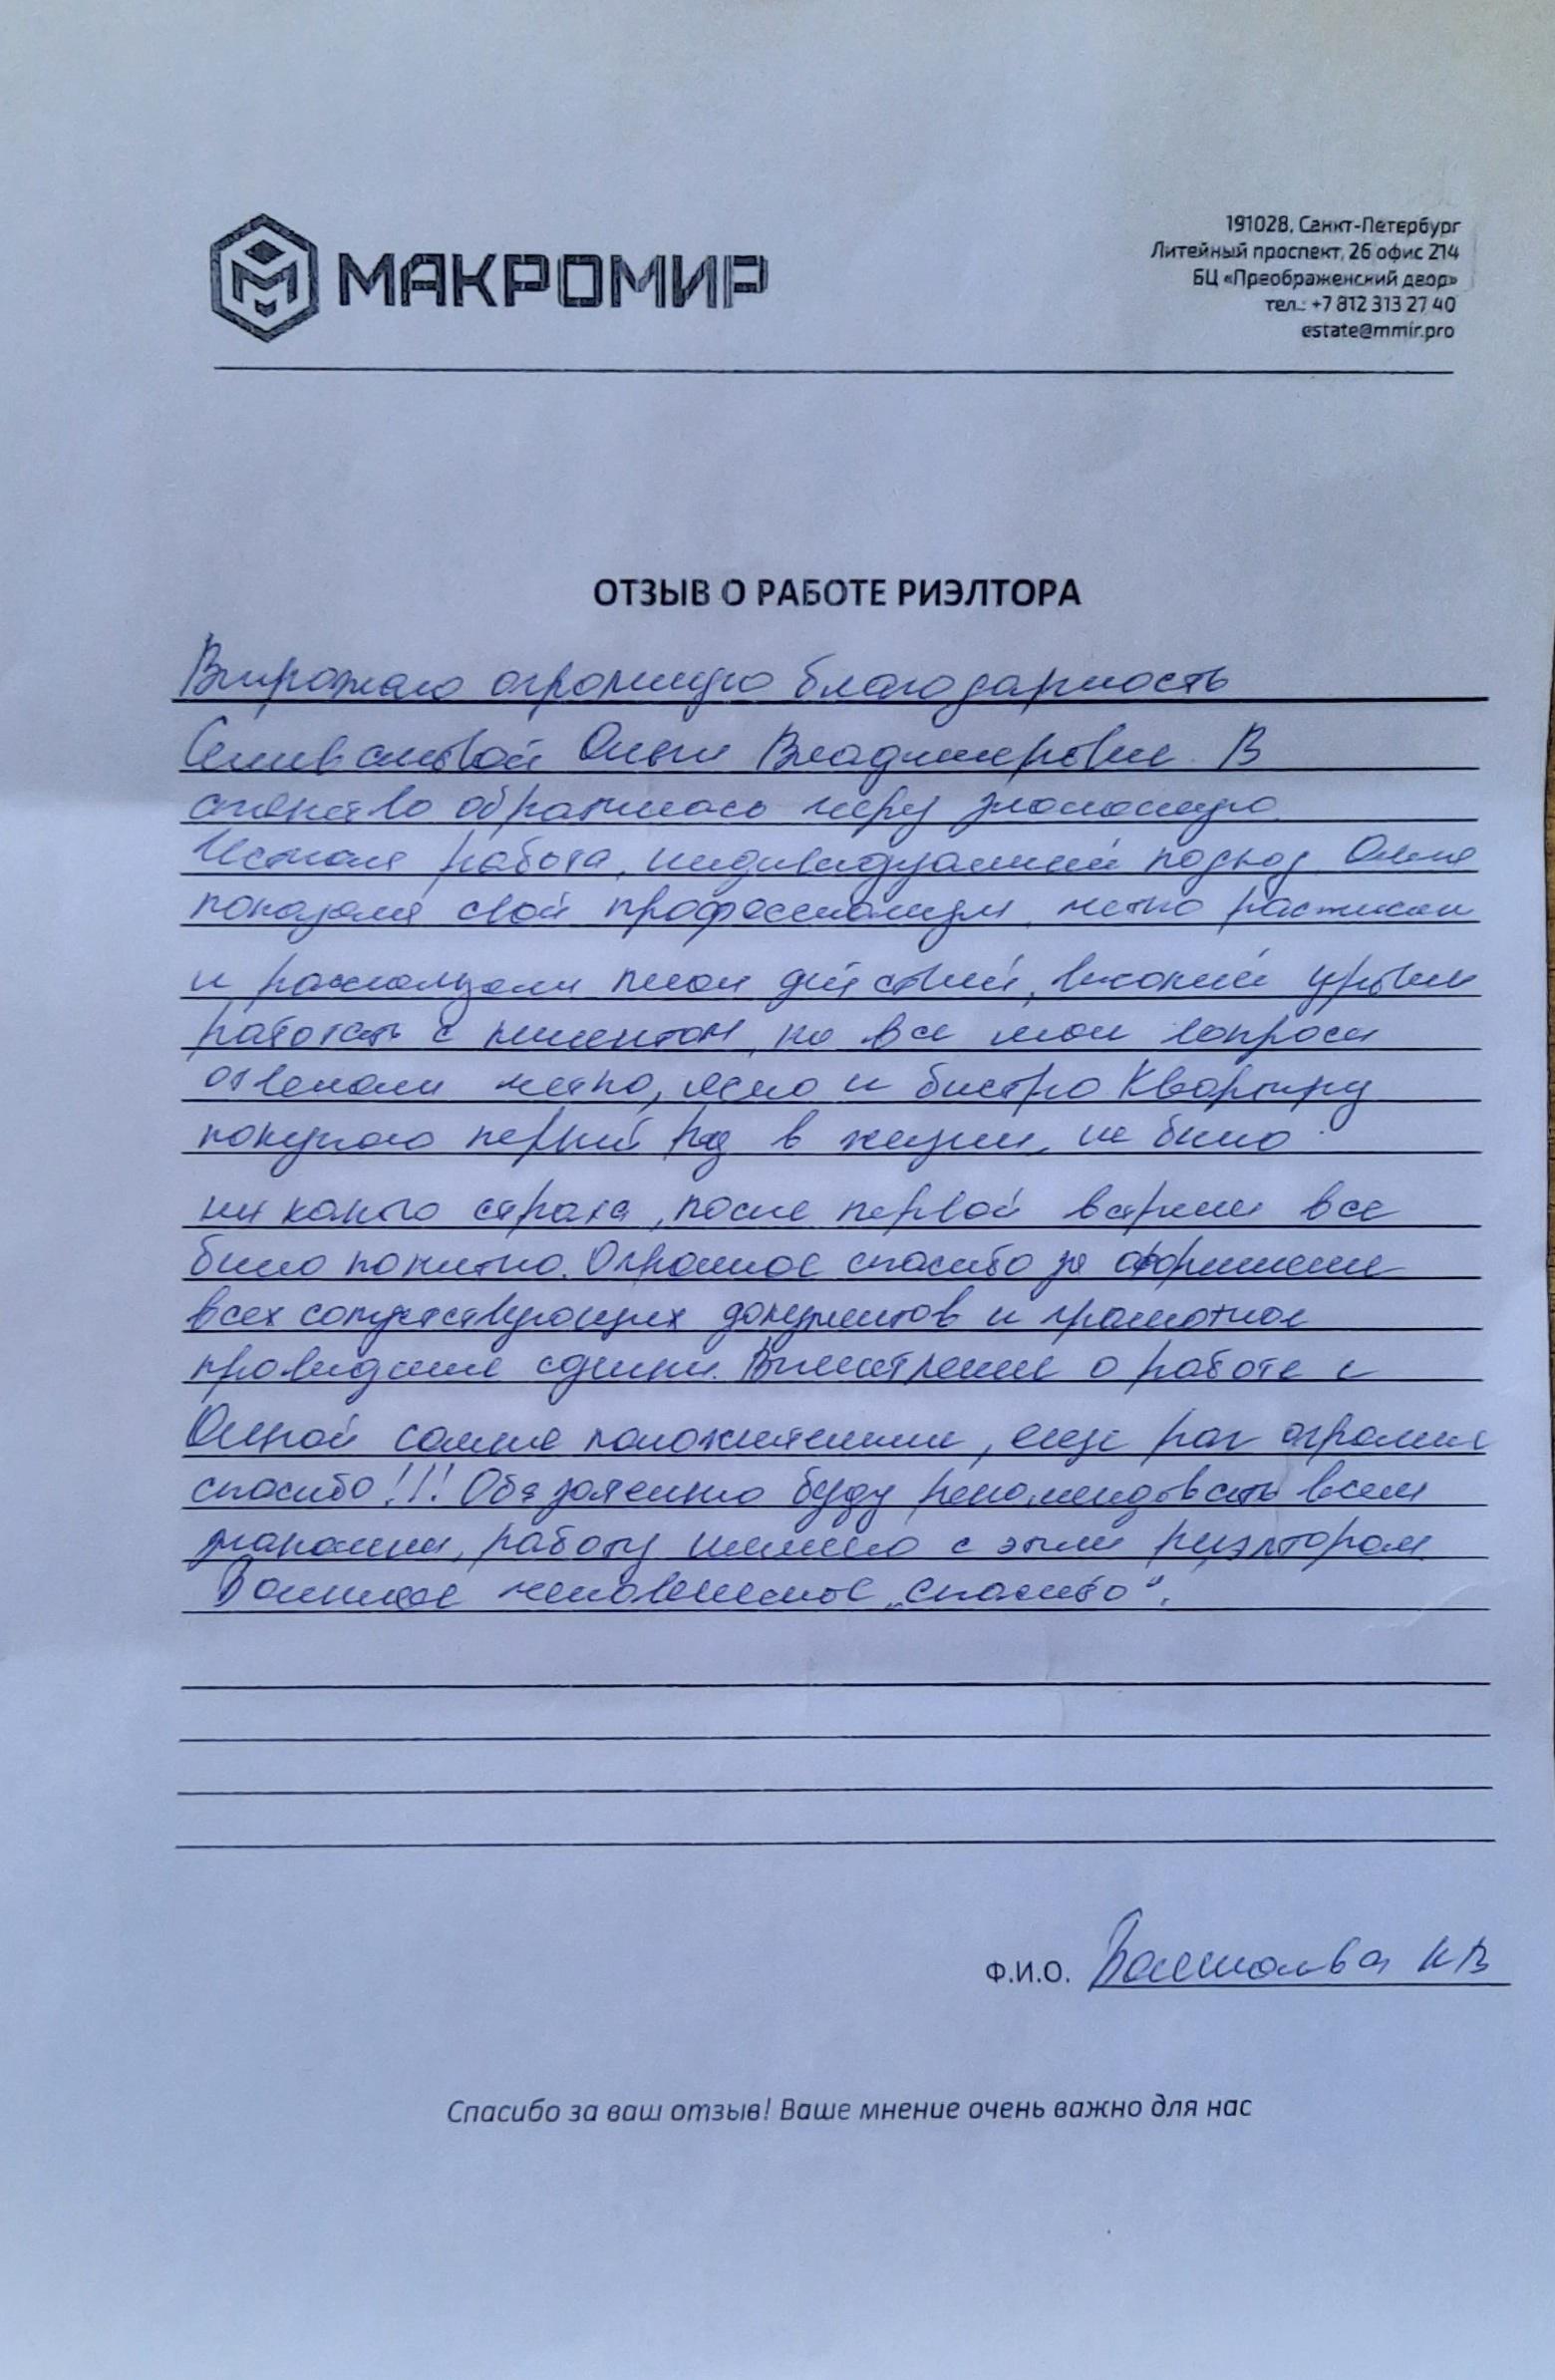 МАКРОМИР
191028, Санкт-Петербург
Литейный проспект, 26 офис 214
БЦ «Преображенский двор»
тел.: +7 812 313 27 40
estate@mmir.pro
ОТЗЫВ О РАБОТЕ РИЭЛТОРА
Выражаю огромную благодарность
Ольги Владимировне. В
агенство обратилась через знакомую.
Честная работа, индивидуальный подход. Ольга
показала свой профессионализм, четко расписали
и рассказали план действий, высокий уровень
работать с клиентом, на все мои вопросы
отвечали четко, ясно и быстро. Квартиру
покупаю первый раз в жизни, не было
ни какого страха, после первой встречи все
было понятно. Огромное спасибо за оформление
всех сопутствующих документов и грамотное
проведение сделки. Впечатление о работе с
Ольгой самые положительные, еще раз огромное
спасибо!!! Обязательно буду рекомендовать всем
знакомым, работу именно с этим риэлтором.
Большое человеческое „спасибо“.
Ф.И.О.
Спасибо за ваш отзыв! Ваше мнение очень важно для нас